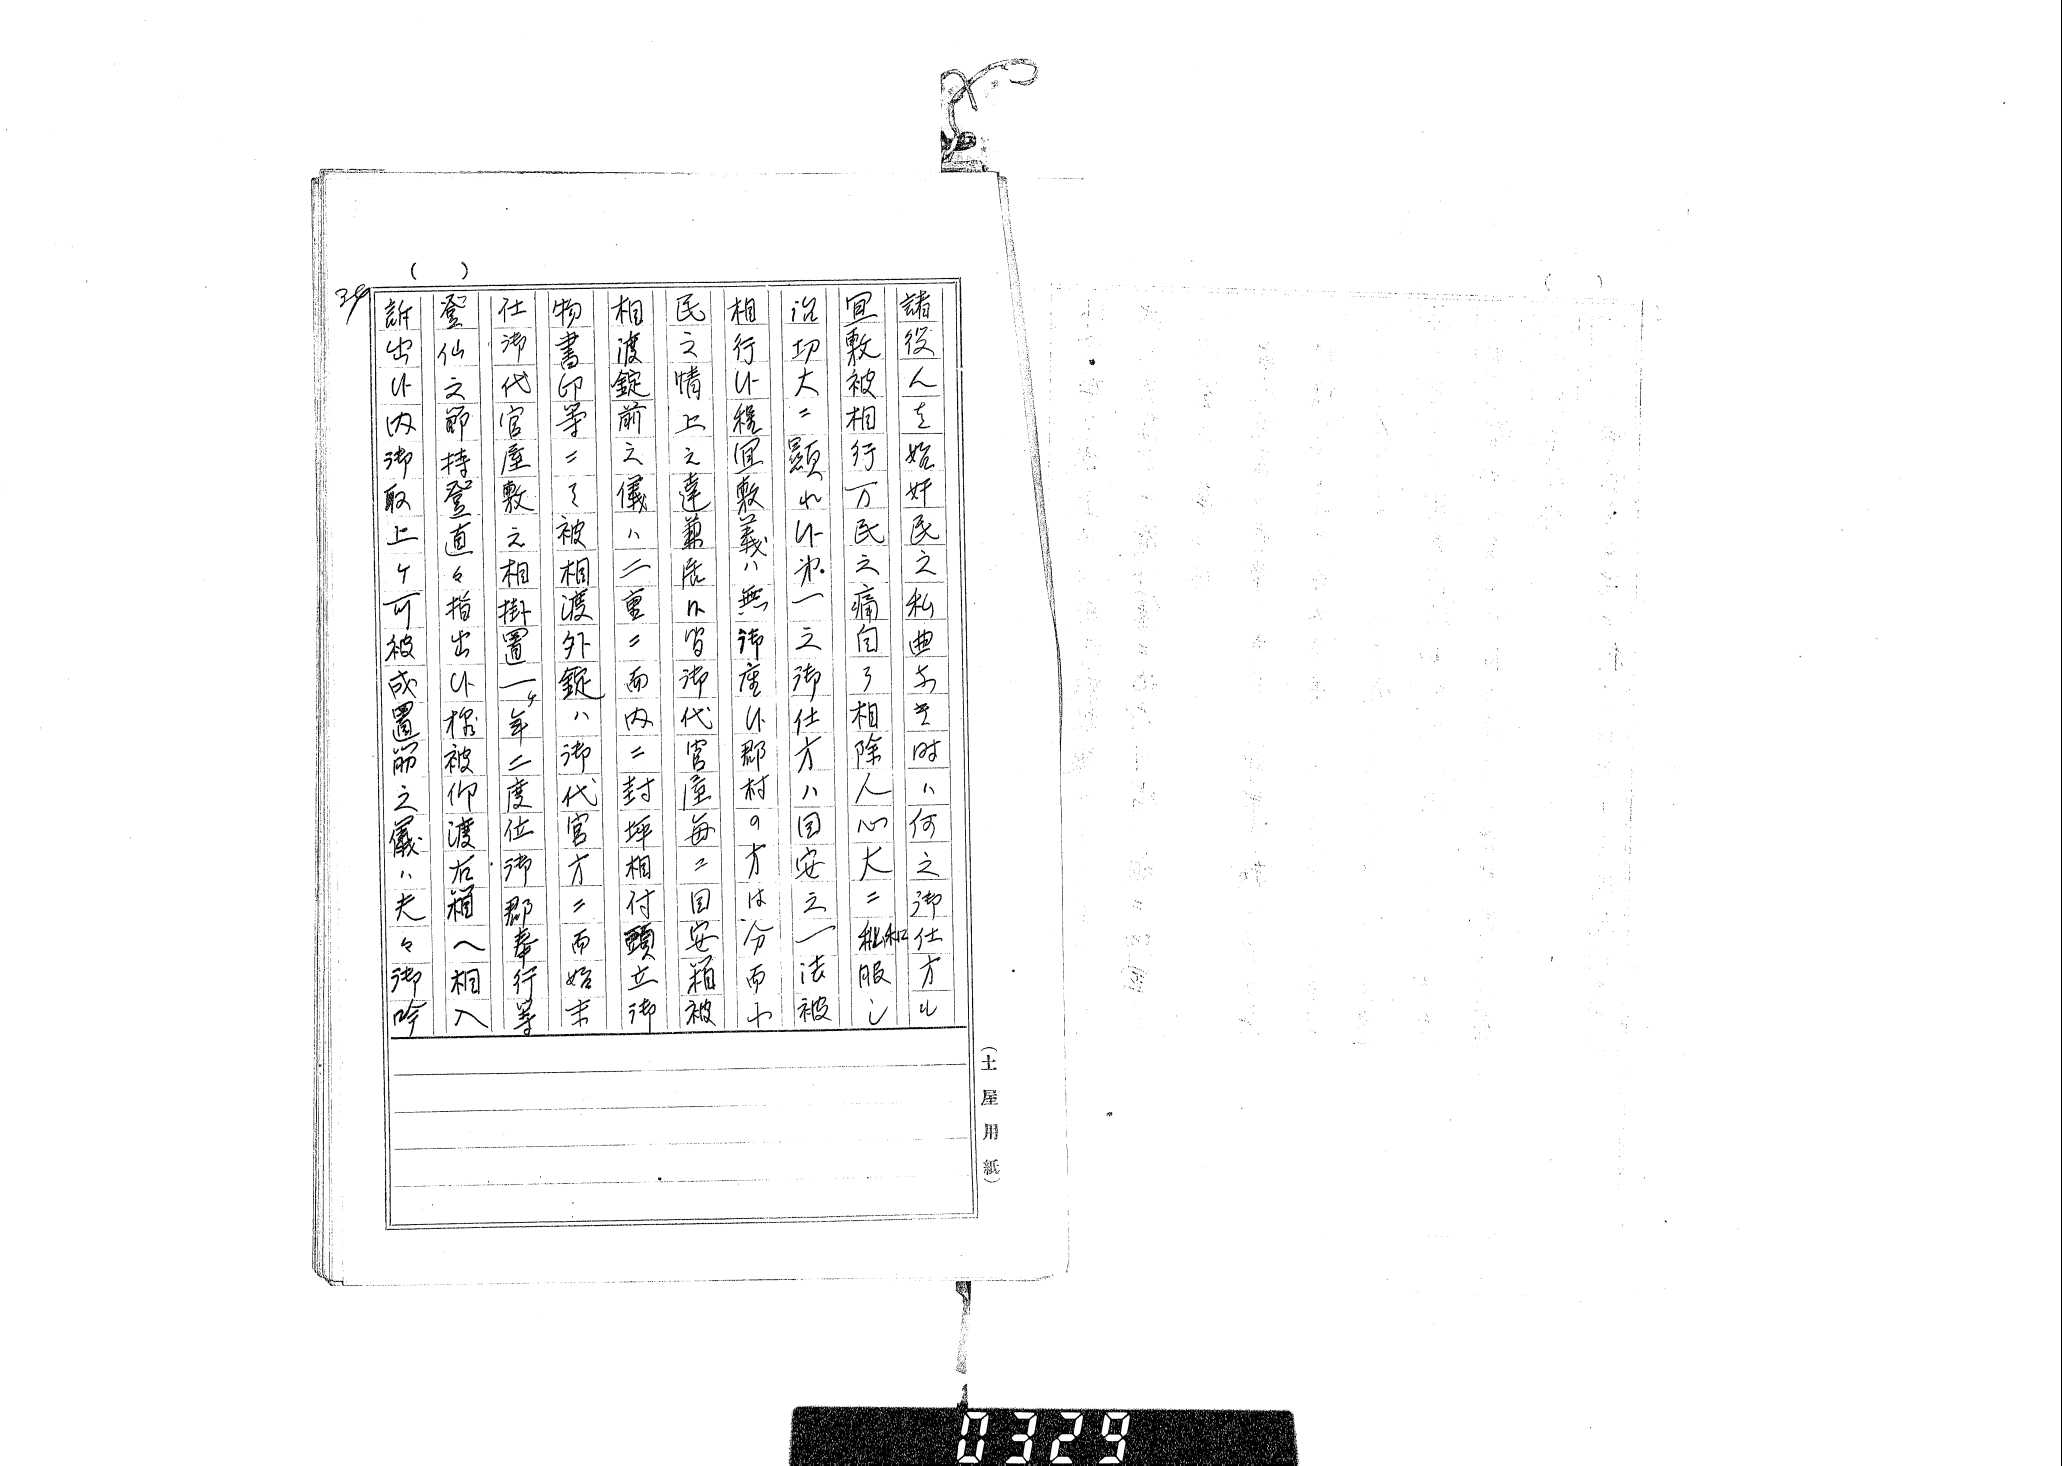 ( )
諸役人を始奸民之私曲なき時ハ何之御仕方ル
宜敷被相行万民之痛自ラ相除人心大ニ和服し
治功大ニ顕れ候第一之御仕方ハ目安之一法被
相行候程宜敷義ハ無御座候郡村の方は分而下
民之情上之達兼居候皆御代官座毎ニ目安箱被
相渡錠前之儀ハ二重ニ而内ニ封坪相付頭立御
物書印等ニて被相渡外錠ハ御代官方ニ而始末
仕御代官座敷之相掛置一ケ年二度位御郡奉行等
登仙之節持登直々指出候様被仰渡右箱へ相入
訴出候内御取上ケ可被成置筋之儀ハ夫々御吟
39
(土屋用紙)
0329